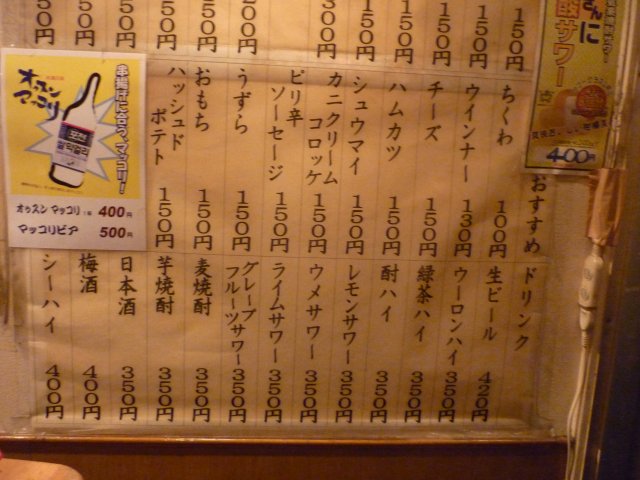 150円
150円
150円
150円
150円
300円
200円
150円
150円
150円
150円
おすすめ
ちくわ 100円
ウインナー 130円
チーズ 150円
ハムカツ 150円
シュウマイ 150円
カニクリーム
コロッケ 150円
ピリ辛
ソーセージ 150円
うずら 150円
おもち 150円
ハッシュド
ポテト 150円
ドリンク
生ビール 420円
ウーロンハイ 350円
緑茶ハイ 350円
酎ハイ 350円
レモンサワー 350円
ウメサワー 350円
ライムサワー 350円
グレープ
フルーツサワー 350円
麦焼酎 350円
芋焼酎 350円
日本酒 350円
梅酒 400円
シーハイ 400円
串揚げに合う、マッコリ!
オゥスン
マッコリ
막걸리
オゥスン マッコリ 400円
マッコリビア 500円
さんに
サワー
400円